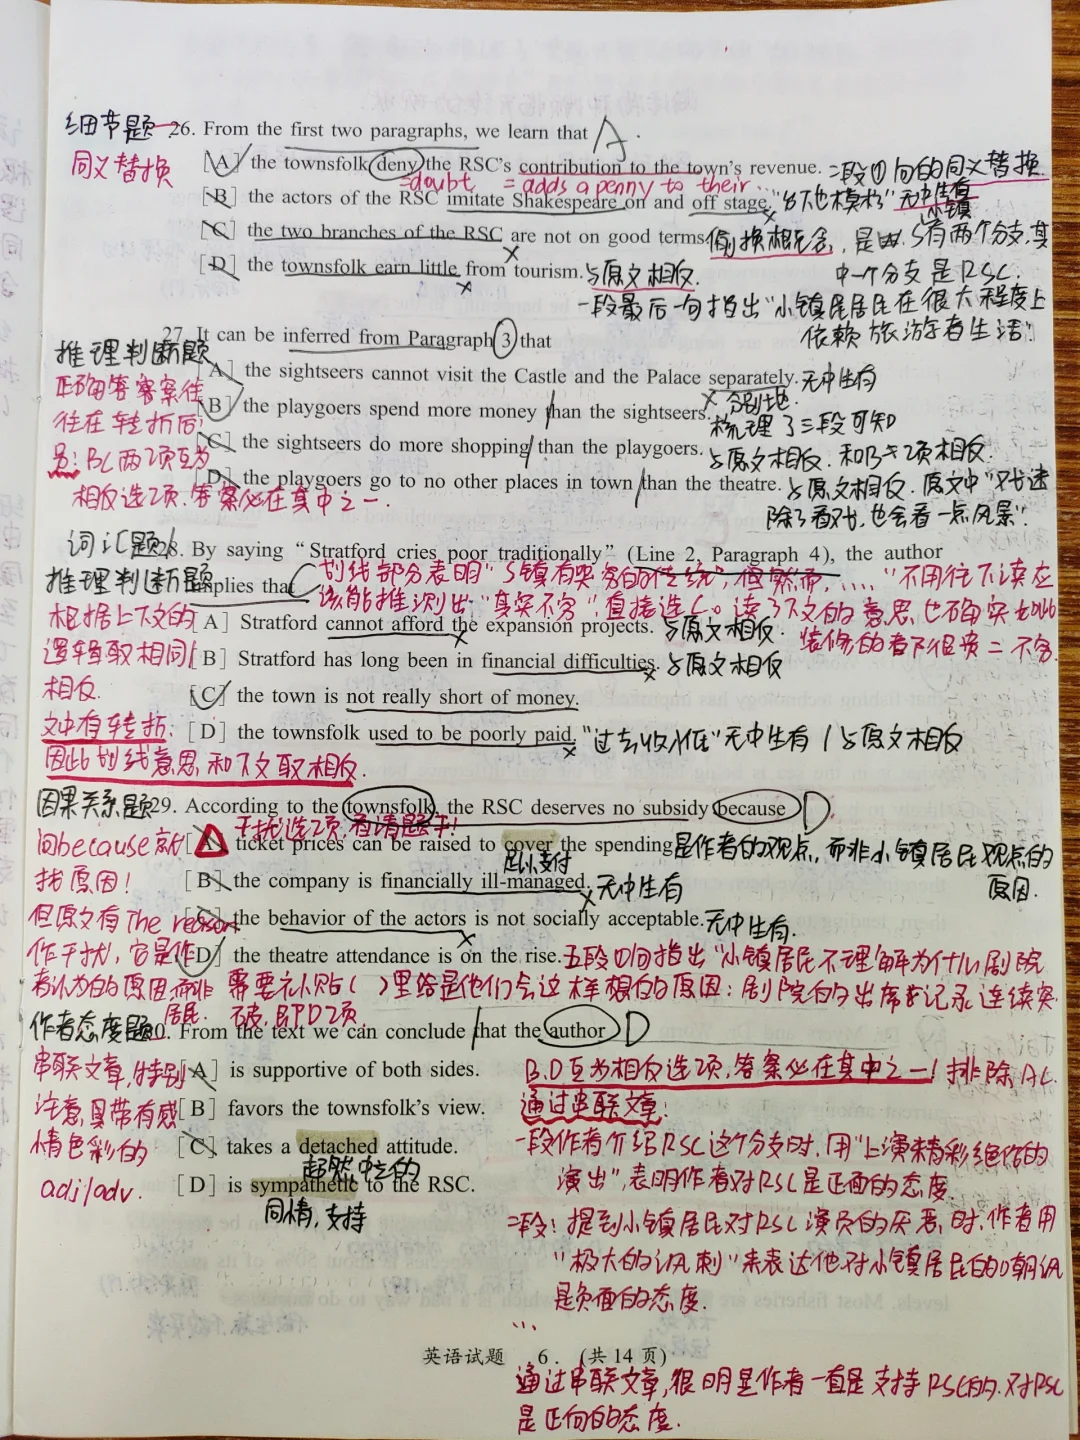 细节题 26. From the first two paragraphs, we learn that A .
同义替换
[A] the townsfolk deny the RSC's contribution to the town's revenue. 二段①句的同义替换.
=doubt = adds a penny to their...
[B] the actors of the RSC imitate Shakespeare on and off stage. "台下也模松" 无中生有
[C] the two branches of the RSC are not on good terms. 偷换概念, 是 小镇 S有两个分支, 其
中一个分支是RSC.
[D] the townsfolk earn little from tourism. 与原文相反.
一段最后一句指出"小镇居民在很大程度上
依赖旅游者生活".
推理判断题
27. It can be inferred from Paragraph 3 that
正确答案往
往在转折后;
另: BC两项互为
相反选项. 答案必在其中之一.
[A] the sightseers cannot visit the Castle and the Palace separately. 无中生有
分别地.
[B] the playgoers spend more money than the sightseers.
梳理了三段可知
[C] the sightseers do more shopping than the playgoers. 与原文相反. 和B选项相反.
[D] the playgoers go to no other places in town than the theatre. 与原文相反. 原文中"戏迷
除了看戏, 也会看一点风景".
词汇题/
推理判断题
28. By saying "Stratford cries poor traditionally" (Line 2, Paragraph 4), the author
implies that C
划线部分表明"S镇有哭穷的传统", 但然而, ...... "不用往下读应
该能推测出: "其实不穷". 直接选C. 读了下文的意思也确实如此
装修的都很贵 = 不穷.
根据上下文的
逻辑取相同/
相反.
文中有转折:
因此划线意思和下文取相反.
[A] Stratford cannot afford the expansion projects. 与原文相反.
[B] Stratford has long been in financial difficulties. 与原文相反
[C] the town is not really short of money.
[D] the townsfolk used to be poorly paid. "过去收入低" 无中生有 / 与原文相反
因果关系题 29. According to the townsfolk, the RSC deserves no subsidy because D
干扰选项, 看清题干!
问because就
找原因!
但原文有The reason
作干扰, 它是作
者认为的原因而非
居民.
[A] ticket prices can be raised to cover the spending. 是作者的观点, 而非小镇居民观点的
原因.
足以支付
[B] the company is financially ill-managed. 无中生有
[C] the behavior of the actors is not socially acceptable. 无中生有.
[D] the theatre attendance is on the rise. 五段①句指出"小镇居民不理解为什么剧院
需要补贴( )里给是他们会这样想的原因: 剧院的出席记录连续突
破, 即D项.
作者态度题 30. From the text we can conclude that the author D
串联文章, 特别
注意具带有感
情色彩的
adj/adv.
[A] is supportive of both sides.
[B] favors the townsfolk's view.
[C] takes a detached attitude.
超然, 中立的
[D] is sympathetic to the RSC.
同情, 支持
B.D互为相反选项, 答案必在其中之一! 排除AC.
通过串联文章:
一段作者介绍RSC这个分支时, 用"上演精彩绝伦的
演出", 表明作者对RSC是正面的态度.
二段: 提到小镇居民对RSC演员的厌恶时, 作者用
"极大的讽刺"来表达他对小镇居民的嘲讽
是负面的态度.
...
英语试题 6. (共14页)
通过串联文章, 很明显作者一直是支持RSC的. 对RSC
是正向的态度.